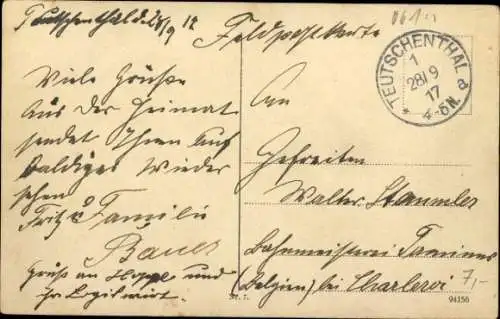 Teutschenthal d. 28/9 17
Feldpostkarte
TEUTSCHENTHAL
1
28/9
17
* 4-5N. d
Viele Grüße
aus der Heimat
sendet Ihnen auf
baldiges Wieder
sehen
Fritz u Familie
Bauer
Gruß an und
ihr Logiswirt.
An
Gefreiten
Walter Stammler
Bahnmeisterei Tamines
(Belgien) bei Charleroi
7,-
94156